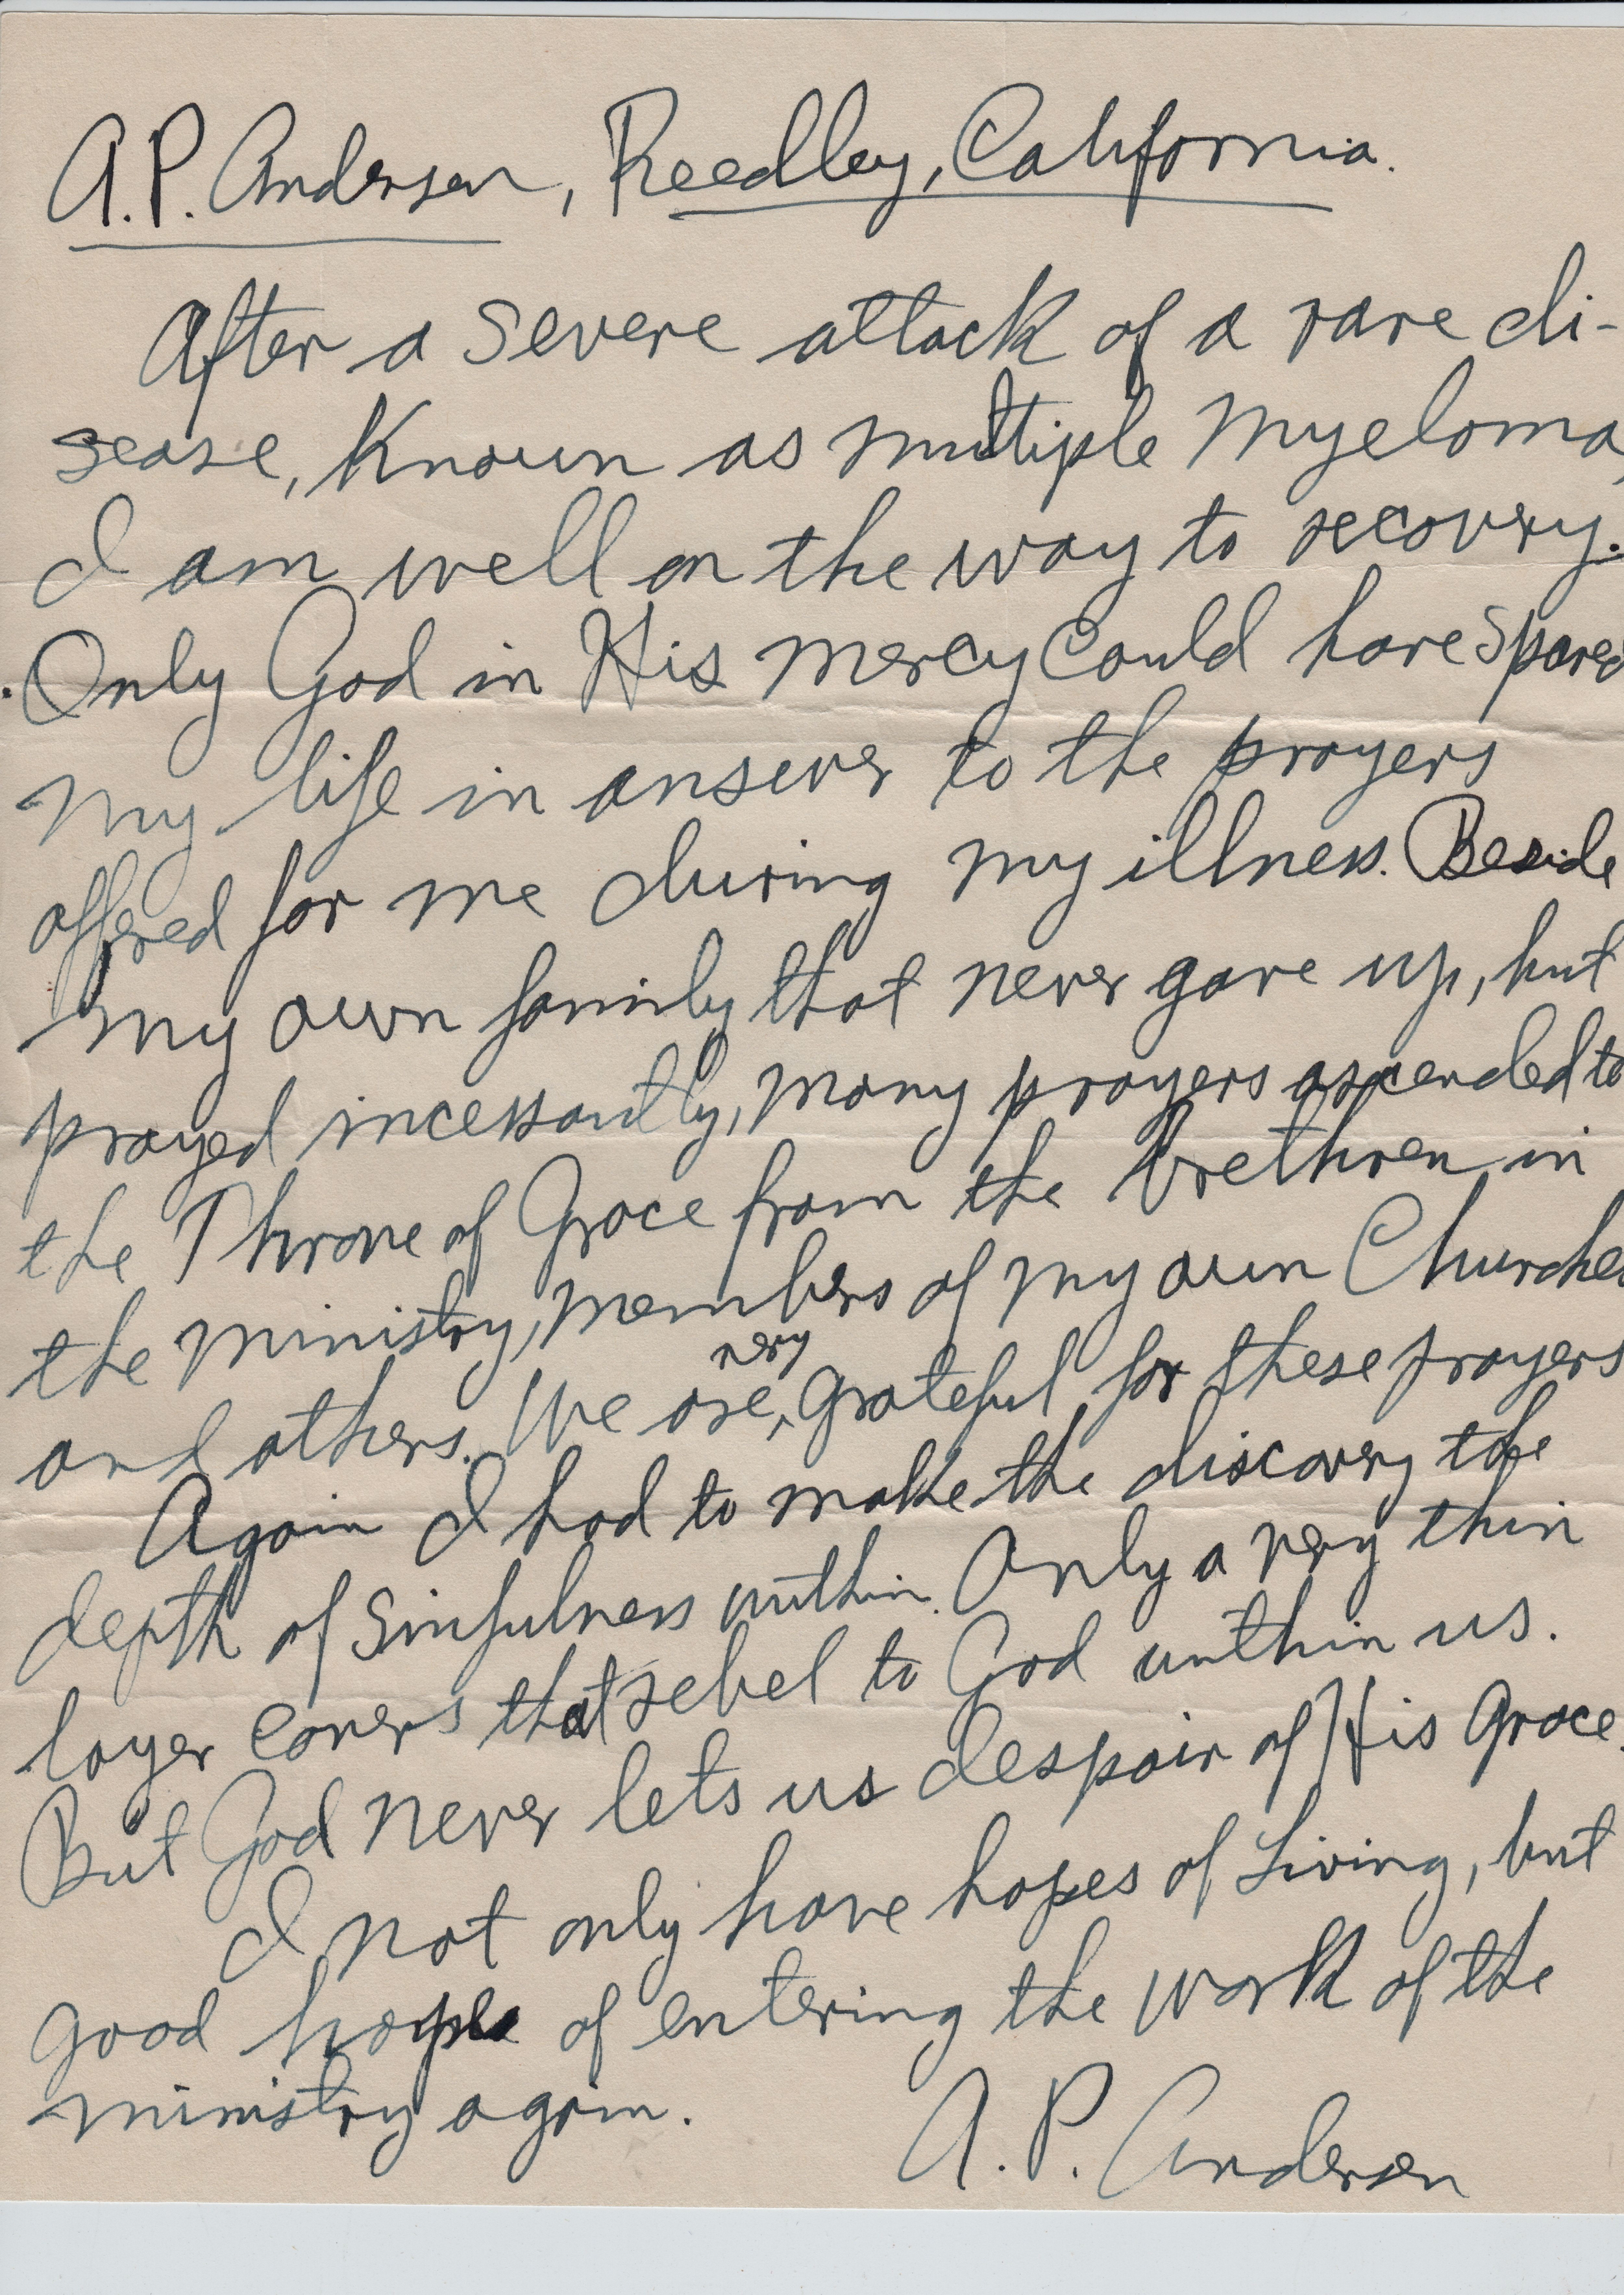 A.P. Andersen, Reedley, California.
After a severe attack of a rare di-
sease, Known as multiple Myeloma,
I am well on the way to recovery.
Only God in His mercy could have spared
my life in answer to the prayers
offered for me during my illness. Beside
my own family that never gave up, but
prayed incessantly, many prayers ascended to
the Throne of Grace from the Brethren in
the ministry, members of my own Churches
very
and others. We are, grateful for these prayers
Again I had to make the discovery the
depth of sinfulness within. Only a very thin
layer covers that rebel to God within us.
But God never lets us despair of His Grace.
I not only have hopes of Living, but
good hope of entering the work of the
ministry again.
A. P. Andersen